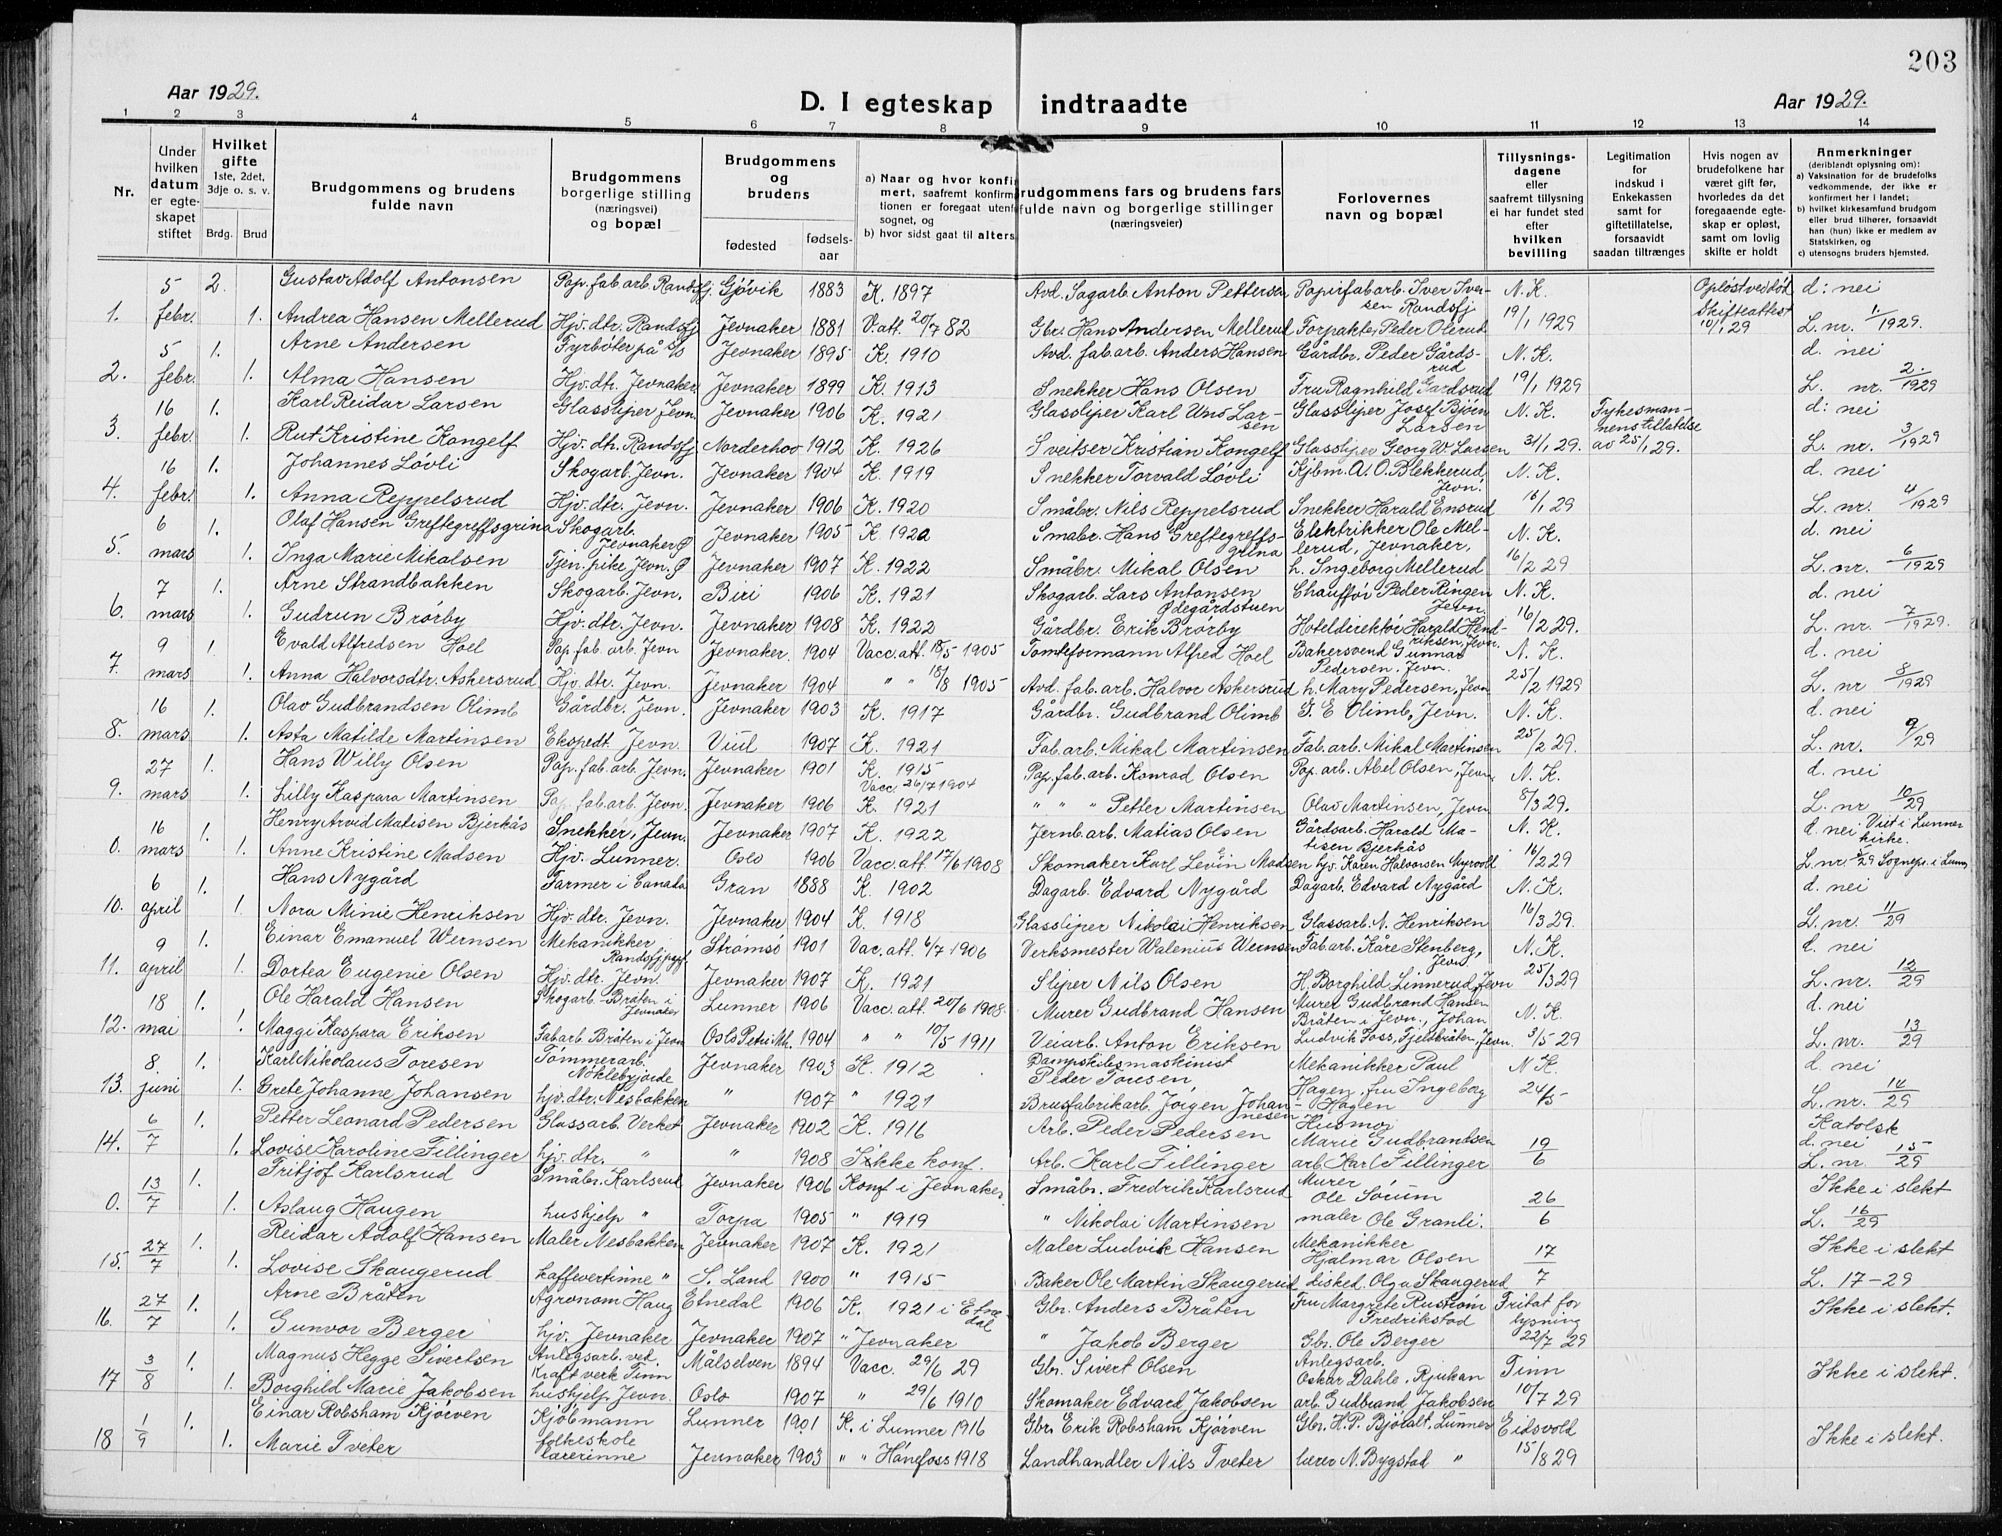 203
Aar 1929.
D. I egteskap indtraadte
Aar 1929.
1 2 3 4 5 6 7 8 9 10 11 12 13 14
Nr.
Under hvilken datum er egte- skapet stiftet
Hvilket gifte 1ste, 2det, 3dje o. s. v.
Brdg. Brud
Brudgommens og brudens fulde navn
Brudgommens borgerlige stilling (næringsvei) og bopæl
Brudgommens og brudens
fødested fødsels- aar
a) Naar og hvor konfir mert, saafremt konfirma tionen er foregaat utenfo sognet, og
b) hvor sidst gaat til alters
rudgommens fars og brudens fars fulde navn og borgerlige stillinger (næringsveier)
Forlovernes navn og bopæl
Tillysnings- dagene eller saafremt tillysning ei har fundet sted efter hvilken bevilling
Legitimation for indskud i Enkekassen samt for giftetillatelse, forsaavidt saadan tiltrænges
Hvis nogen av brudefolkene har været gift før, hvorledes da det foregaaende egte- skap er opløst, samt om lovlig skifte er holdt
Anmerkninger (deriblandt oplysning om):
a) Vaksination for de brudefolks vedkommende, der ikke er konfirmert her i landet;
b) hvilket kirkesamfund brudgom eller brud tilhører, forsaavidt han (hun) ikke er medlem av Statskirken, og
c) utensogns bruders hjemsted.
5 2. Gustav Adolf Antonsen Pap. fab. arb. Randsfj. Gjøvik 1883 K. 1897 Avd. Sagarb. Anton Pettersen Papirfab arb. Iver Iver- sen Randsfj N. K. Opløst ved død d: nei
1. febr. 1. Andrea Hansen Mellerud Hjv. dtr. Randsfj Jevnaker 1881 V. att. 20/7 82 Gbr. Hans Andersen Mellerud Forpakter Peder Olerud 19/1 1929 Skifteattest 10/1 29 L. nr. 1/1929.
5 1. Arne Andersen Fyrbøter på Jevnaker 1895 K. 1910 Avd. fab arb. Anders Hansen Gårdbr. Peder Gårds- rud N. K. d. nei
2. febr. 1. Alma Hansen Hjv. dtr. Jevnaker. Jevnaker 1899 K. 1913 Snekker Hans Olsen Fru Ragnhild Gårdsrud 19/1 1929 L. nr. 2./1929
16 1. Karl Reidar Larsen Glassliper Jevn. Jevnaker 1906 K. 1921 Glassliper Karl Uno Lar- sen Glassliper Josef Bjørn Larsen N. K. Fylkesman- nens tillatelse d: nei
3. febr. 1. Rut Kristine Kongelf Hjv. dtr. Randsfj Norderhov 1912 K. 1926 Sveitser Kristian Kongelf Glassliper Georg W. Larsen 31/1 29. av 25/1 29. L. nr. 3/1929
16 1. Johannes Løvli Skogarb. Jevn. Jevnaker 1904 K. 1919 Snekker Torvald Løvli Kjbm. A. O. Blekkerud Jevn. N. K. d. nei
4. febr. 1. Anna Reppelsrud Hjv. dtr. Jevn. Jevnaker 1906 K. 1920 Småbr. Nils Reppelsrud Snekker Harald Ensrud 16/1 29 L. nr. 4/1929
6 1. Olaf Hansen Greftegreffsgrina Skogarb. Jevnaker Ø Jevnaker 1905 K. 1920 Småbr. Hans Greftegreffs- grina Elektrikker Ole Mel- lerud, Jevnaker, N. K. d. nei
5. mars 1. Inga Marie Mikalsen Tjen. pike Jevn. Ø Jevnaker 1907 K. 1922 Småbr. Mikal Olsen h. Ingeborg Mellerud 16/2 29 L. nr. 6/1929
7 1. Arne Strandbakken Skogarb. Jevn. Biri 1906 K. 1921 Skogarb. Lars Antonsen Ødegårdstuen Chauffør Peder Ringen Jevn. N. K. d. nei
6. mars 1. Gudrun Brørby Hjv. dtr. Jevn. Jevnaker 1908 K. 1922 Gårdbr. Erik Brørby Hoteldirektør Harald Hend- riksen, Jevn. 16/2 29. L. nr. 7/1929.
9 1. Evald Alfredsen Hoel Pap. fab. arb. Jevn Jevnaker. 1904 Vacc. att. 18/5 1905 Tomteformann Alfred Hoel Bakersvend Gunnar Pedersen, Jevn. N. K. d. nei
7. mars 1. Anna Halvorsdtr. Askersrud Hjv. dtr. Jevn. Jevnaker 1904 " " 18/8 1905 Avd. fab. arb. Halvor Askersrud h. Mary Pedersen, Jevn 25/2 1929 L. nr 8/1929
16 1. Olav Gudbrandsen Olimb Gårdbr. Jevn. Jevnaker 1903 K. 1917 Gårdbr. Gudbrand Olimb G. E Olimb, Jevn. N. K. d. nei
8. mars 1. Asta Matilde Martinsen Ekspedt. Jevn. Viul 1907 K. 1921 Fab. arb. Mikal Martinsen Fab. arb. Mikal Martinsen 25/2 29. L. nr. 9/29
27 1. Hans Willy Olsen Pap. fab. arb. Jevn. Jevnaker 1901 K. 1915 Vacc. 26/7 1904 Pap. fab. arb. Konrad Olsen Pap. arb. Abel Olsen, Jevn N. K. d. nei
9. mars 1. Lilly Kaspara Martinsen Pap. fab arb. Jevn. Jevnaker 1906 K. 1921 " " " Petter Martinsen Olav Martinsen, Jevn 8/3 29. L. nr 10/29
16 1. Henry Arvid Matisen Bjerkås Snekker, Jevn. Jevnaker 1907 K. 1922 Jernb. arb. Matias Olsen Gårdsarb. Harald Ma- tisen Bjerkås N. K. d. nei Viet i Lunner kirke.
0. mars 1. Anne Kristine Madsen Hjv. Lunner. Oslo 1906 Vacc. att. 17/6 1908 Skomaker Karl Levin Madsen hjv. Karen Halvorsen Myrvoll 16/2 29 L. nr 5/29 Sognepr. i Lunn.
6 1. Hans Nygård Farmer i Canada Gran 1888 K. 1902 Dagarb. Edvard Nygård Dagarb. Edvard Nygård N. K. d. nei
10. april 1. Nora Minie Henriksen Hjv. dtr. Jevn. Jevnaker 1904 K. 1918 Glassliper Nikolai Henriksen Glassarb. N. Henriksen 16/3 29. L. nr. 11/29
9 1. Einar Emanuel Wernsen Mekanikker Randsfj Strømsø 1901 Vac. att. 6/7 1906 Verksmester Walenius Wernsen Fab. arb. Kåre Stenberg, Jevn. N. K. d. nei
11. april 1. Dortea Eugenie Olsen Hjv. dtr. Jevn. Jevnaker 1907 K. 1921 Sliper Nils Olsen H. Borghild Linnerud, Jevn 25/3 29 L. nr. 12/29
18 1. Ole Harald Hansen Skogarb. Bråten i Jevnaker Lunner 1906 Vacc. att. 20/6 1908. Murer Gudbrand Hansen Murer Gudbrand Hansen Bråten i Jevn., Johan N. K. d. nei
12. mai 1. Maggi Kaspara Eriksen Fabarb. Bråten i Jevn Oslo Petri M. 1904 " " 10/5 1911 Veiarb. Anton Eriksen Ludvik Foss, Fjeldbråten, Jevn. 3/5-29 L. nr. 13/29
8. 1. Karl Nikolaus Toresen Tømmerarb. Nøklebyjorde Jevnaker 1903 K. 1912 Dampskibsmaskinist Peder Toresen, Mekanikker Paul N. K. d. nei
13. juni 1. Grete Johanne Johansen hjv. dtr. Nesbakken " 1907 " 1921 Brusfabrikarb. Jørgen Johan- nesen Hagen, fru Ingeborg Hagen 24/5 L. nr. 14/29
6/7 1. Petter Leonard Pedersen Glassarb. Verket Jevnaker 1902 K. 1916 Arb. Peder Pedersen Husmor Marie Gudbrandsen 19/6 Katolsk d. nei
14. 1. Lovise Karoline Fillinger hjv. dtr. " " 1908 Ikke konf. Arb. Karl Fillinger arb. Karl Fillinger L. nr 15/29
13/7 1. Fritjof Karlsrud Småbr. Karlsrud Jevnaker 1906 Konf i Jevnaker Småbr. Fredrik Karlsrud Murer Ole Søium 26/6 Ikke i slekt
0. 1. Aslaug Haugen hushjelp " Torpa 1905 " 1919 " Nikolai Martinsen maler Ole Granli. L. 16/29
27/7 1. Reidar Adolf Hansen Maler Nesbakken Jevnaker 1907 K. 1921 Maler Ludvik Hansen Mekanikker Hjalmar Olsen 17/7 Ikke i slekt
15. 1. Lovise Skaugerud kaffevertinne " S. Land 1900 " 1915 Baker Ole Martin Skaugerud Disked. Olga Skaugerud L. 17-29
27/7 1. Arne Bråten Agronom Haug Etnedal 1906 K. 1921 i Etne- dal Gbr. Anders Bråten Fru Margrete Rustrøm Fredrikstad Fritat for lysning Ikke i slekt.
16. 1. Gunvor Berger hjv. Jevnaker Jevnaker 1907 " Jevnaker " Jakob Berger Gbr. Ole Berger 22/7 29
3/8 1. Magnus Hegge Sivertsen Anlegsarb. ved. Kraftverk Tinn Målselven 1894 Vacc. 29/6 29 Gbr. Sivert Olsen Anlegsarb. Oskar Dahle, Rjukan Tinn Ikke i slekt.
17 1. Borghild Marie Jakobsen hushjelp Jevn. Oslo 1907 " 29/6 1910 Skomaker Edvard Jakobsen arb. Gudbrand Jakobsen 10/7 29
1/9 1. Einar Robsham Kjørven Kjøbmann Lunner 1901 K. i Lunner 1916 Gbr. Erik Robsham Kjørven Gbr. H. P. Bjøralt, Lunner Eidsvold Ikke i slekt.
18 1. Marie Tveter folkeskole lærerinne Jevnaker 1903 " " Hønefoss 1918 Landhandler Nils Tveter lærer N. Bygstad " 15/8 29